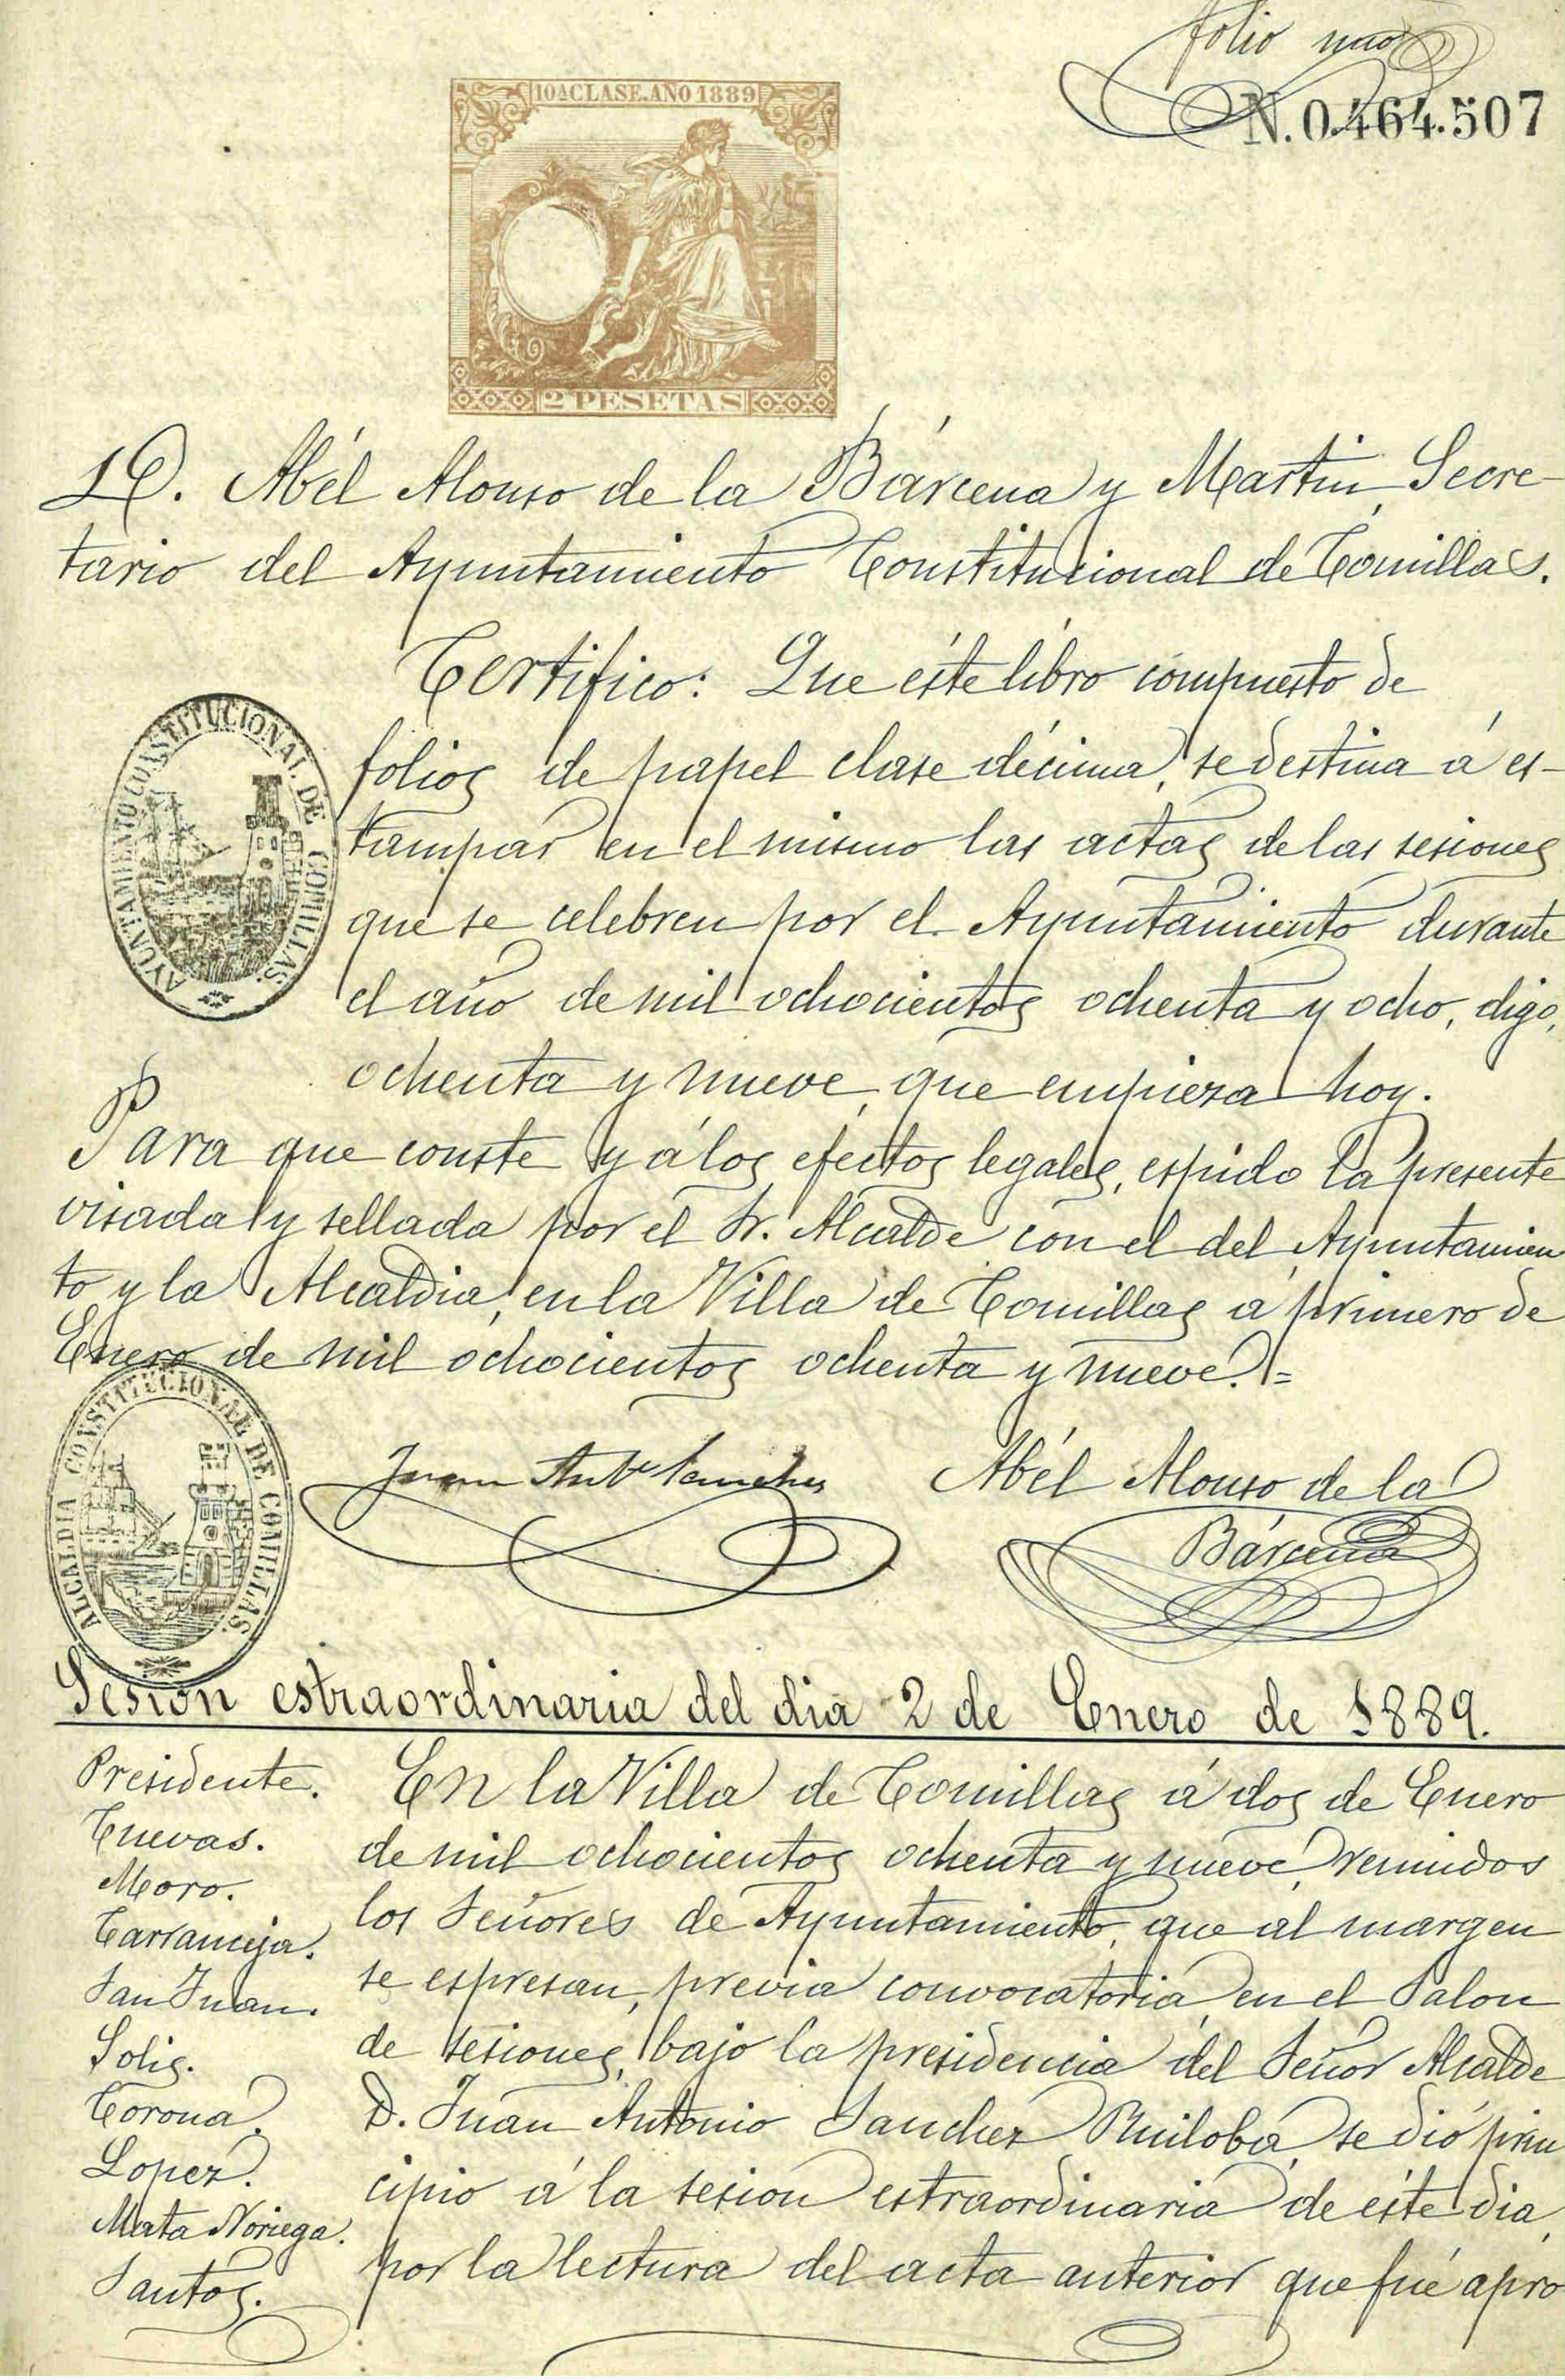 folio uno
N. 0.464.507
10ª CLASE. AÑO 1889
2 PESETAS
D. Abél Alonso de la Bárcena y Martin, Secre-
tario del Ayuntamiento Constitucional de Comillas.
Certifico: Que éste libro compuesto de
folios de papel clase décima, se destina á es-
tampar en el mismo las actas de las sesiones
que se celebren por el Ayuntamiento durante
el año de mil ochocientos ochenta y ocho, digo,
ochenta y nueve, que empieza hoy.
AYUNTAMIENTO CONSTITUCIONAL DE COMILLAS.
Para que conste y á los efectos legales, espido la presente
visada y sellada por el Sr. Alcalde con el del Ayuntamien
to y la Alcaldia, en la Villa de Comillas á primero de
Enero de mil ochocientos ochenta y nueve.=
ALCALDIA CONSTITUCIONAL DE COMILLAS.
Juan Antº Sanchez
Abél Alonso de la
Bárcena
Sesion estraordinaria del dia 2 de Enero de 1889.
Presidente.
Cuevas.
Moro.
Carranceja.
San Juan.
Solis.
Corona.
Lopez.
Mata Noriega.
Santos.
En la Villa de Comillas á dos de Enero
de mil ochocientos ochenta y nueve, reunidos
los Señores de Ayuntamiento, que al margen
se espresan, previa convocatoria, en el Salon
de sesiones, bajo la presidencia del Señor Alcalde
D. Juan Antonio Sanchez Ruiloba, se dió prin
cipio á la sesion estraordinaria de éste dia,
por la lectura del acta anterior que fué apro